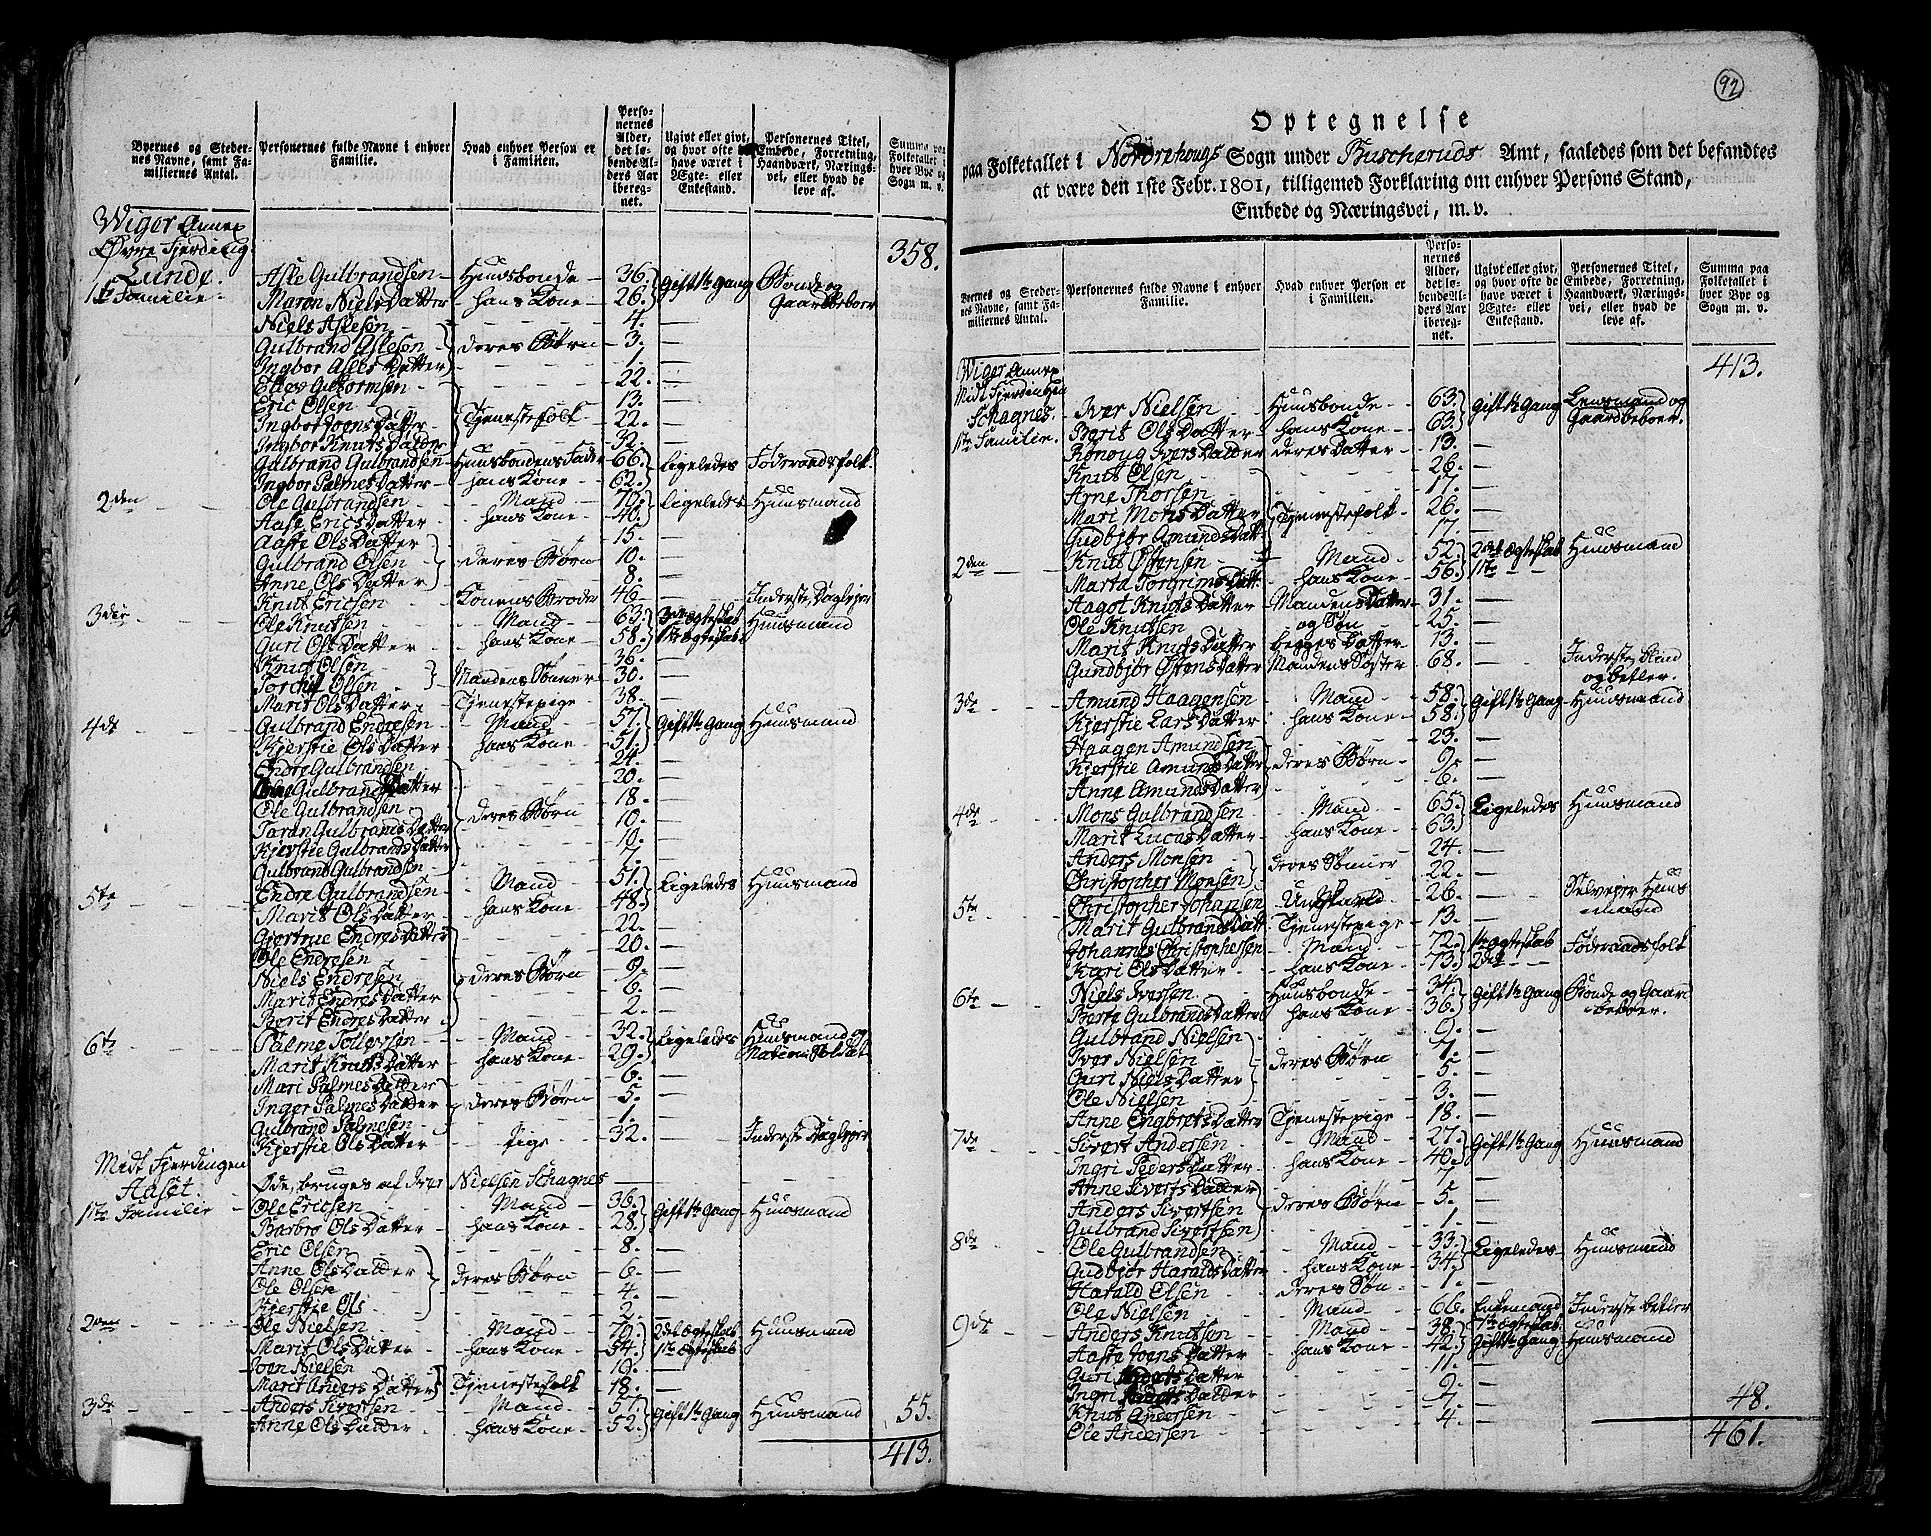 Byernes og Steder-
nes Navne, samt Fa-
miliernes Antal.
Personernes fulde Navne i enhver
Familie.
Hvad enhver Person er
i Familien.
Perso-
nernes
Alder,
det lø-
bende Al-
ders Aar
ibereg-
net.
Ugivt eller givt,
og hvor ofte de
have været i
Ægte- eller
Enkestand.
Personernes Titel,
Embede, Forretning,
Haandværk, Nærings-
vei, eller hvad de
leve af.
Summa paa
Folketallet i
hver Bye og
Sogn m. v.
Wiger Annex
Øvre Fjerding
358.
Lunde.
1te Familie - Asle Gulbrandsen - Huusbonde - 36. Gift 1te Gang Bonde og
Maren Niels Datter - hans Kone - 26. Gaardbeboer
Niels Aslesen 4. —
Gulbrand Aslesen deres Børn 3. —
Ingbor Asles Datter 1. —
Ellev Guttormsen 22. —
Eric Olsen 13. —
Ingbor Joens Datter Tjenestefolk 22. —
Ingbor Knuts Datter 32. —
Gulbrand Gulbrandsen Huusbondens Fader 66. Ligeledes Föderaadsfolk
Ingbor Palmes Datter hans Kone 62.
2den Ole Gulbrandsen Mand 70. Ligeledes Huusmand
Aase Erics Datter hans Kone 40.
Aaste Ols Datter 15. —
Gulbrand Olsen deres Børn 10. —
Anne Ols Datter 8. —
Knut Ericsen Konens Broder 46 — Inderste, Daglejer
3die Ole Knutsen Mand 63. 3die Ægteskab Huusmand
Guri Ols Datter hans Kone 58. 1te Ægteskab
Knut Olsen 36. —
Torchil Olsen Mandens Sönner 30. —
Marit Ols Datter Tjenestepige 38. —
4de Gulbrand Endresen Mand 57. Gift 1te Gang Huusmand
Kjerstie Ols Datter hans Kone 51.
Endre Gulbrandsen 24. —
Gulbrands Datter 20. —
Ole Gulbrandsen 18. —
Taran Gulbrands Datter deres Børn 10. —
Kjerstie Gulbrands Datter 10. —
Gulbrand Gulbrandsen 7. —
5te Endre Gulbrandsen Mand 51. Ligeledes Huusmand
Marit Ols Datter hans Kone 48.
Gjertrue Endres Datter 22. —
Ole Endresen 20. —
Niels Endresen deres Børn 9. —
Marit Endres Datter 6. —
Berit Endres Datter 2. —
6te Palme Tollevsen Mand 32. Ligeledes Huusmand og
Marit Knuts Datter hans Kone 29. Nation: Soldat
Mari Palmes Datter 6. —
Inger Palmes Datter deres Børn 5. —
Gulbrand Palmesen 1. —
Kjerstie Ols Datter Pige 32. — Inderste Daglejer
Midt Fjerdingen
Aaset. Øde, bruges af Iver Nielsen Schagnes
1te Familie Ole Ericsen Mand 36. Gift 1te Gang Huusmand
Barbro Ols Datter hans Kone 28.
Eric Olsen 8. —
Anne Ols Datter deres Børn 6. —
Ole Olsen 4. —
Kjerstie Ols 2. —
2den Ole Nielsen Mand 70. 2det Ægteskab Huusmand
Marit Ols Datter hans Kone 54. 1te Ægteskab
Joen Nielsen 19. —
Marit Anders Datter Tjenestefolk 18. —
3de Anders Sivertsen Mand 57. Gift 1te Gang Huusmand 55.
Anne Ols Datter hans Kone 52.
413.
92
Optegnelse
paa Folketallet i Nordrehougs Sogn under Buscheruds Amt, saaledes som det befandtes
at være den 1ste Febr. 1801, tilligemed Forklaring om enhver Persons Stand,
Embede og Næringsvei, m. v.
Byernes og Steder-
nes Navne, samt Fa-
miliernes Antal.
Personernes fulde Navne i enhver
Familie.
Hvad enhver Person er
i Familien.
Perso-
nernes
Alder,
det lø-
bende Al-
ders Aar
ibereg-
net.
Ugivt eller givt,
og hvor ofte de
have været i
Ægte- eller
Enkestand.
Personernes Titel,
Embede, Forretning,
Haandværk, Nærings-
vei, eller hvad de
leve af.
Summa paa
Folketallet i
hver Bye og
Sogn m. v.
Wiger Annex
413.
Midt Fjerdingen
Schagnes. Iver Nielsen Huusbonde 63. Gift 1te Gang Lensmand og
1te Familie. Berit Ols Datter hans Kone 63. Gaardbeboer.
Ronoug Ivers Datter deres Datter 13. —
Knut Olsen 26. —
Arne Thorsen 17. —
Mari Mons Datter Tjenestefolk 26. —
Gudbjör Amunds Datt: 17. —
2den Knut Östensen Mand 52. 2det Ægteskab Huusmand
Marta Torgrims Datt: hans Kone 56. 1te —
Aagot Knuts Datter Mandens Datter 31. —
Ole Knutsen og Søn 25. —
Marit Knuts Datter begges Datter 13. —
Gundbjör Östens Datter Mandens Søster 68. — Inderste, blind
og betler.
3de Amund Haagensen Mand 58. Gift 1te Gang Huusmand
Kjerstie Lars Datter hans Kone 58.
Haagen Amundsen 23. —
Kjerstie Amunds Datter deres Børn 9. —
Anne Amunds Datter 6. —
4de Mons Gulbrandsen Mand 65. Ligeledes Huusmand
Marit Lucas Datter hans Kone 63.
Anders Monsen 24. —
Christopher Monsen deres Sønner 22. —
5te Christopher Johansen Ungkarl 26. — Selvejer Huus
mand
Marit Gulbrands Datt: Tjenestepige 13. —
Johannes Christophersen Mand 72. 1te Ægteskab Föderaadsfolk
Kari Ols Datter hans Kone 73. 2det —
6te Niels Iversen Huusbonde 34. Gift 1te Gang Bonde og Gaard
Berte Gulbrands Datter hans Kone 36. beboer.
Gulbrand Nielsen 9. —
Iver Nielsen deres Børn 7. —
Guri Niels Datter 5. —
Ole Nielsen 3. —
Anne Engbrets Datter Tjenestepige 18. —
7de Sivert Andersen Mand 27. Gift 1te Gang Huusmand
Ingri Peders Datter hans Kone 40.
Anne Siverts Datter 7. —
Anders Sivertsen deres Børn 5. —
Gulbrand Sivertsen 1. —
8de Ole Gulbrandsen Mand 33. Ligeledes Huusmand
Gudbjör Haralds Datter hans Kone 34.
Harald Olsen deres Søn 1. —
Ole Nielsen Mand 66. Enkemand Inderste betler
9de Anders Knutsen Mand 38. 1te Ægteskab
Aaste Joens Datter hans Kone 42. Gift 1te Gang Huusmand
Guri Anders Datter 11. —
Ingri Anders Datter 9. —
Knut Andersen 7. — 48.
Ole Andersen 4. —
461.